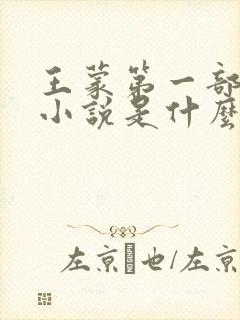 王蒙第一部
小說是什麼
左京也/左京